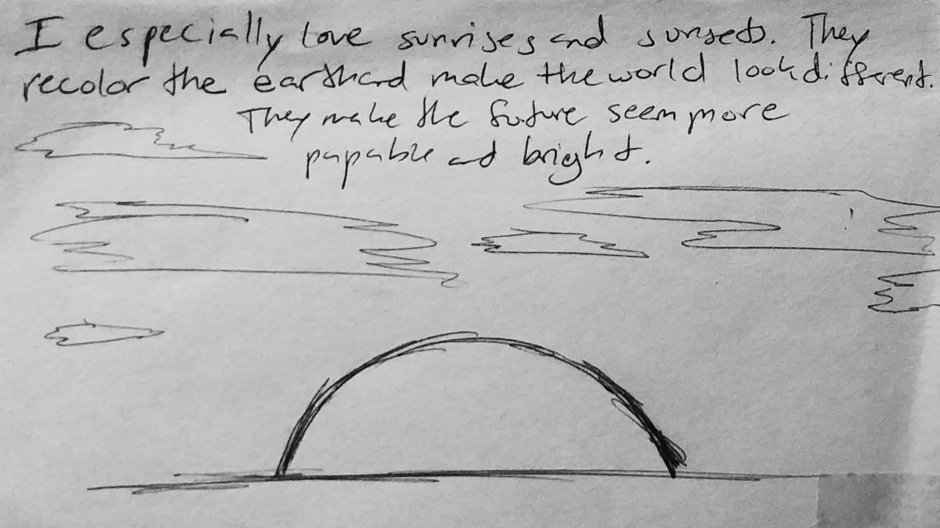 I especially love sunrises and sunsets. They
recolor the earth and make the world look different.
They make the future seem more
papable and bright.